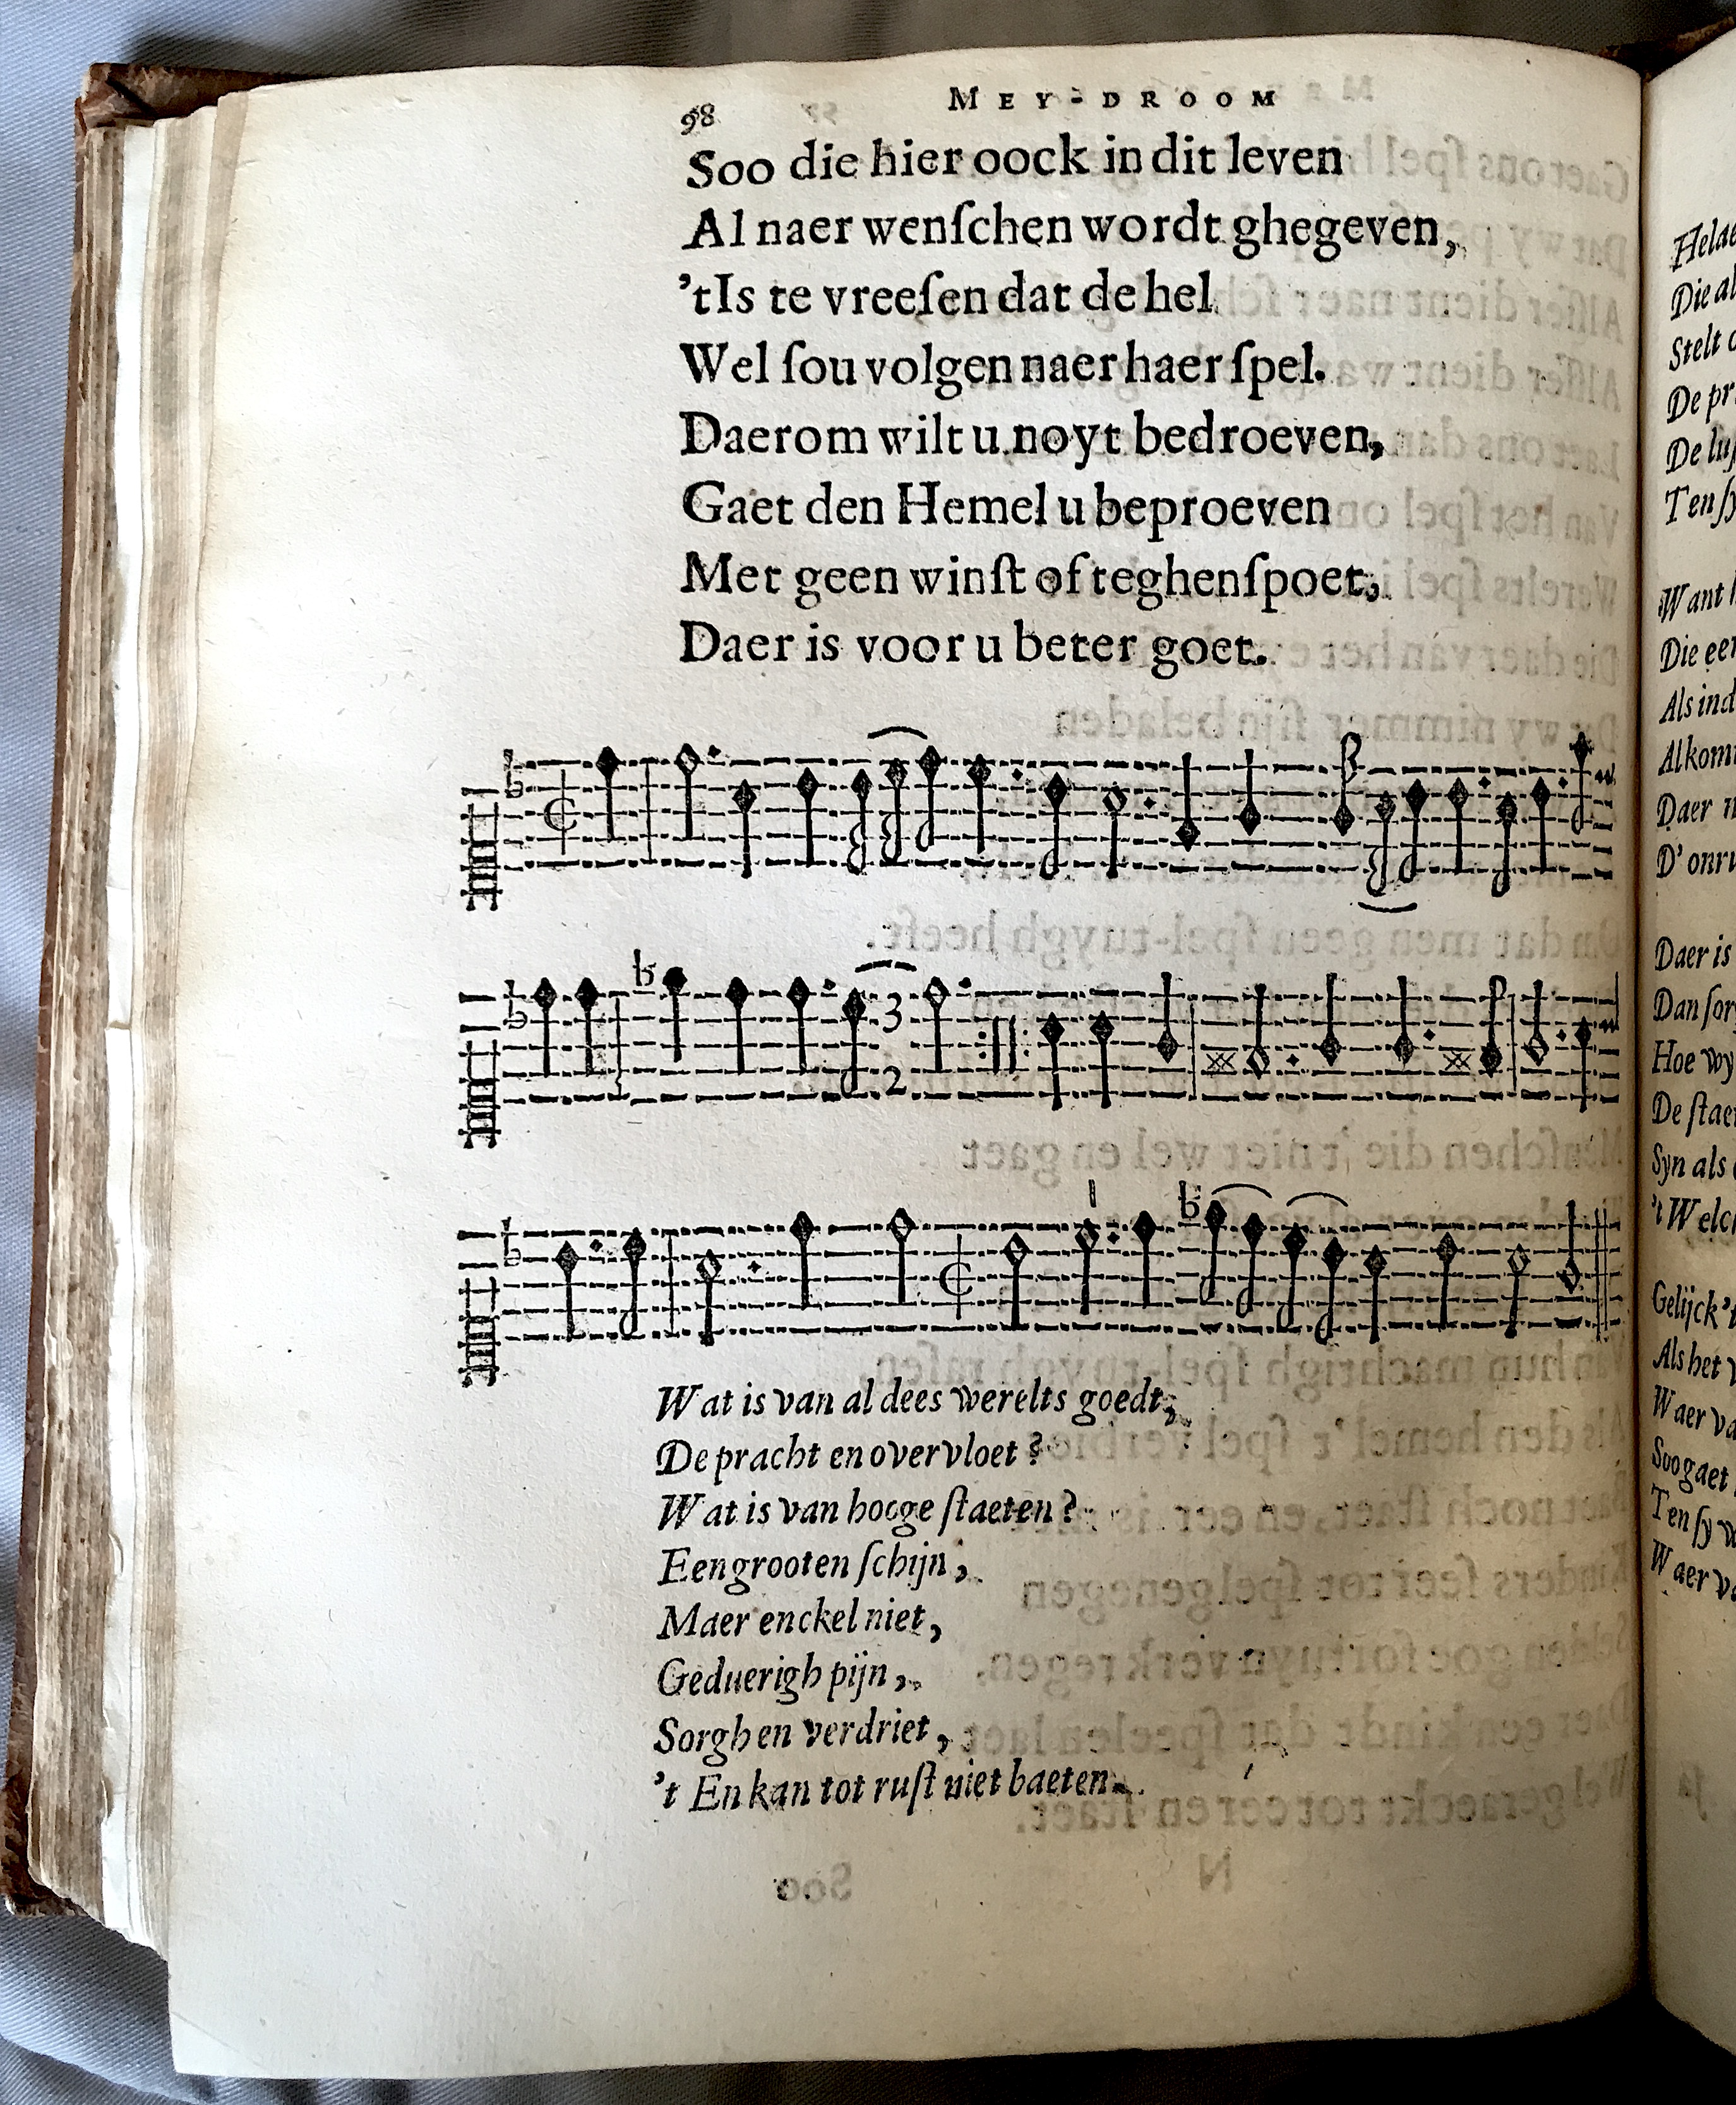 98 MEY-DROOM
Soo die hier oock in dit leven
Al naer wenſchen wordt ghegeven,
'tIs te vreeſen dat de hel
Wel ſou volgen naer haer ſpel.
Daerom wilt u noyt bedroeven,
Gaet den Hemel u beproeven
Met geen winſt of teghenſpoet,
Daer is voor u beter goet.
3
2
Wat is van al dees werelts goedt,
De pracht en overvloet?
Wat is van hooge ſtaeten?
Een grooten ſchijn,
Maer enckel niet,
Geduerigh pijn,
Sorgh en verdriet,
't En kan tot ruſt niet baeten.
Die al
Stelt
De
De
Want
Die
Als
Daer
D'
Daer is
Dan
Hoe wy
De
Syn als
Gelijck
Als het
Waer
Soo gaet
Ten ſy
Waer